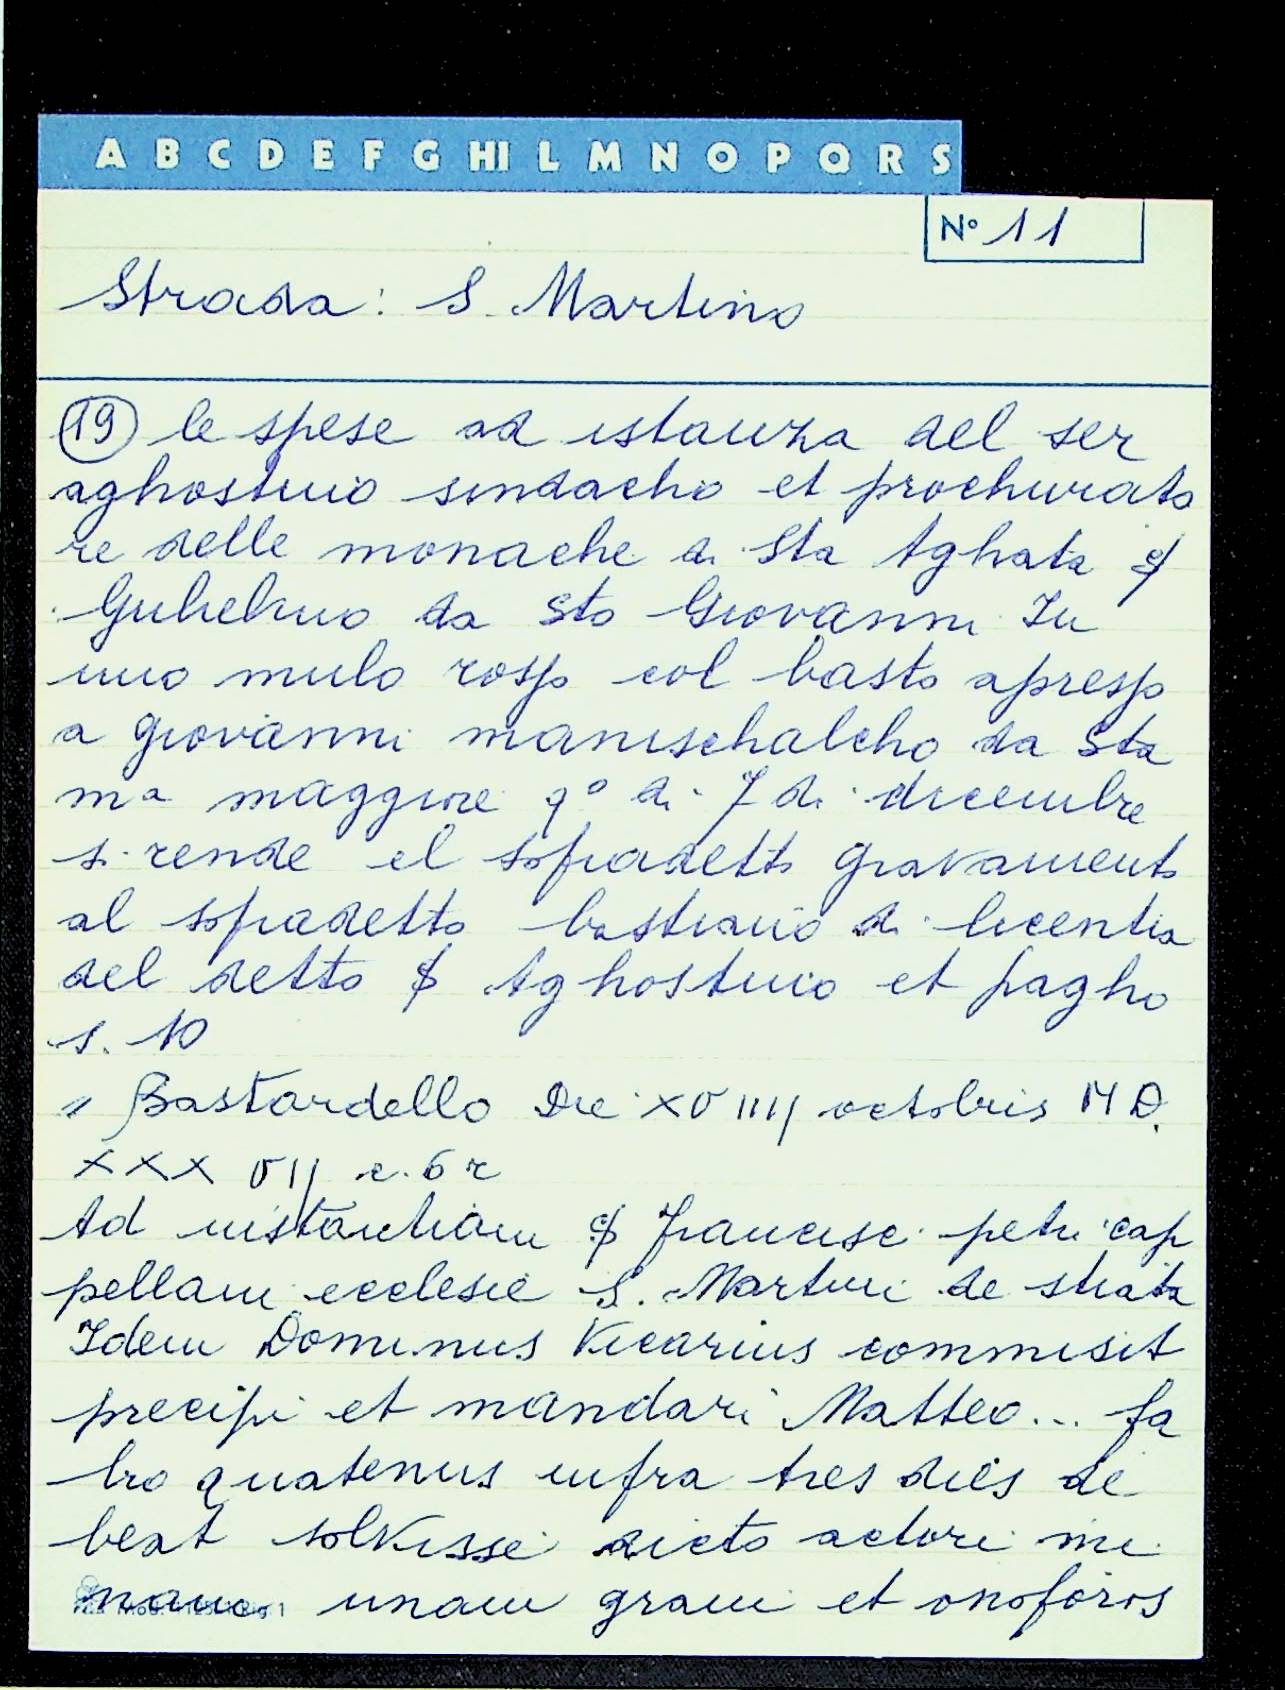 A B C D E F G HI L M N O P Q R S
N° 11
Strada: S. Martino
(19) le spese ad istanza del ser
aghostino sindacho et prochurato
re delle monache di Sta Aghata $
Gulielmo da Sto Giovanni In
uno mulo rosso col basto apresso
a Giovanni manischalcho da Sta
ma maggiore qº di 7 di dicembre
si rende el sopradetto gravamento
al sopradetto bastiano di licentia
del detto $ Aghostino et pagho
s. 10
" Bastardello Die XVIIIJ octobris MD.
XXXVIJ c. 6 r
Ad instantiam $ francisc. petri cap
pellani ecclesie S. Martini de strata
Idem Dominus Vicarius commisit
precipi et mandari Matteo... fa
bro quatenus infra tres dies de
beat solvisse dicto actori mi
nam unam grani et onoforos